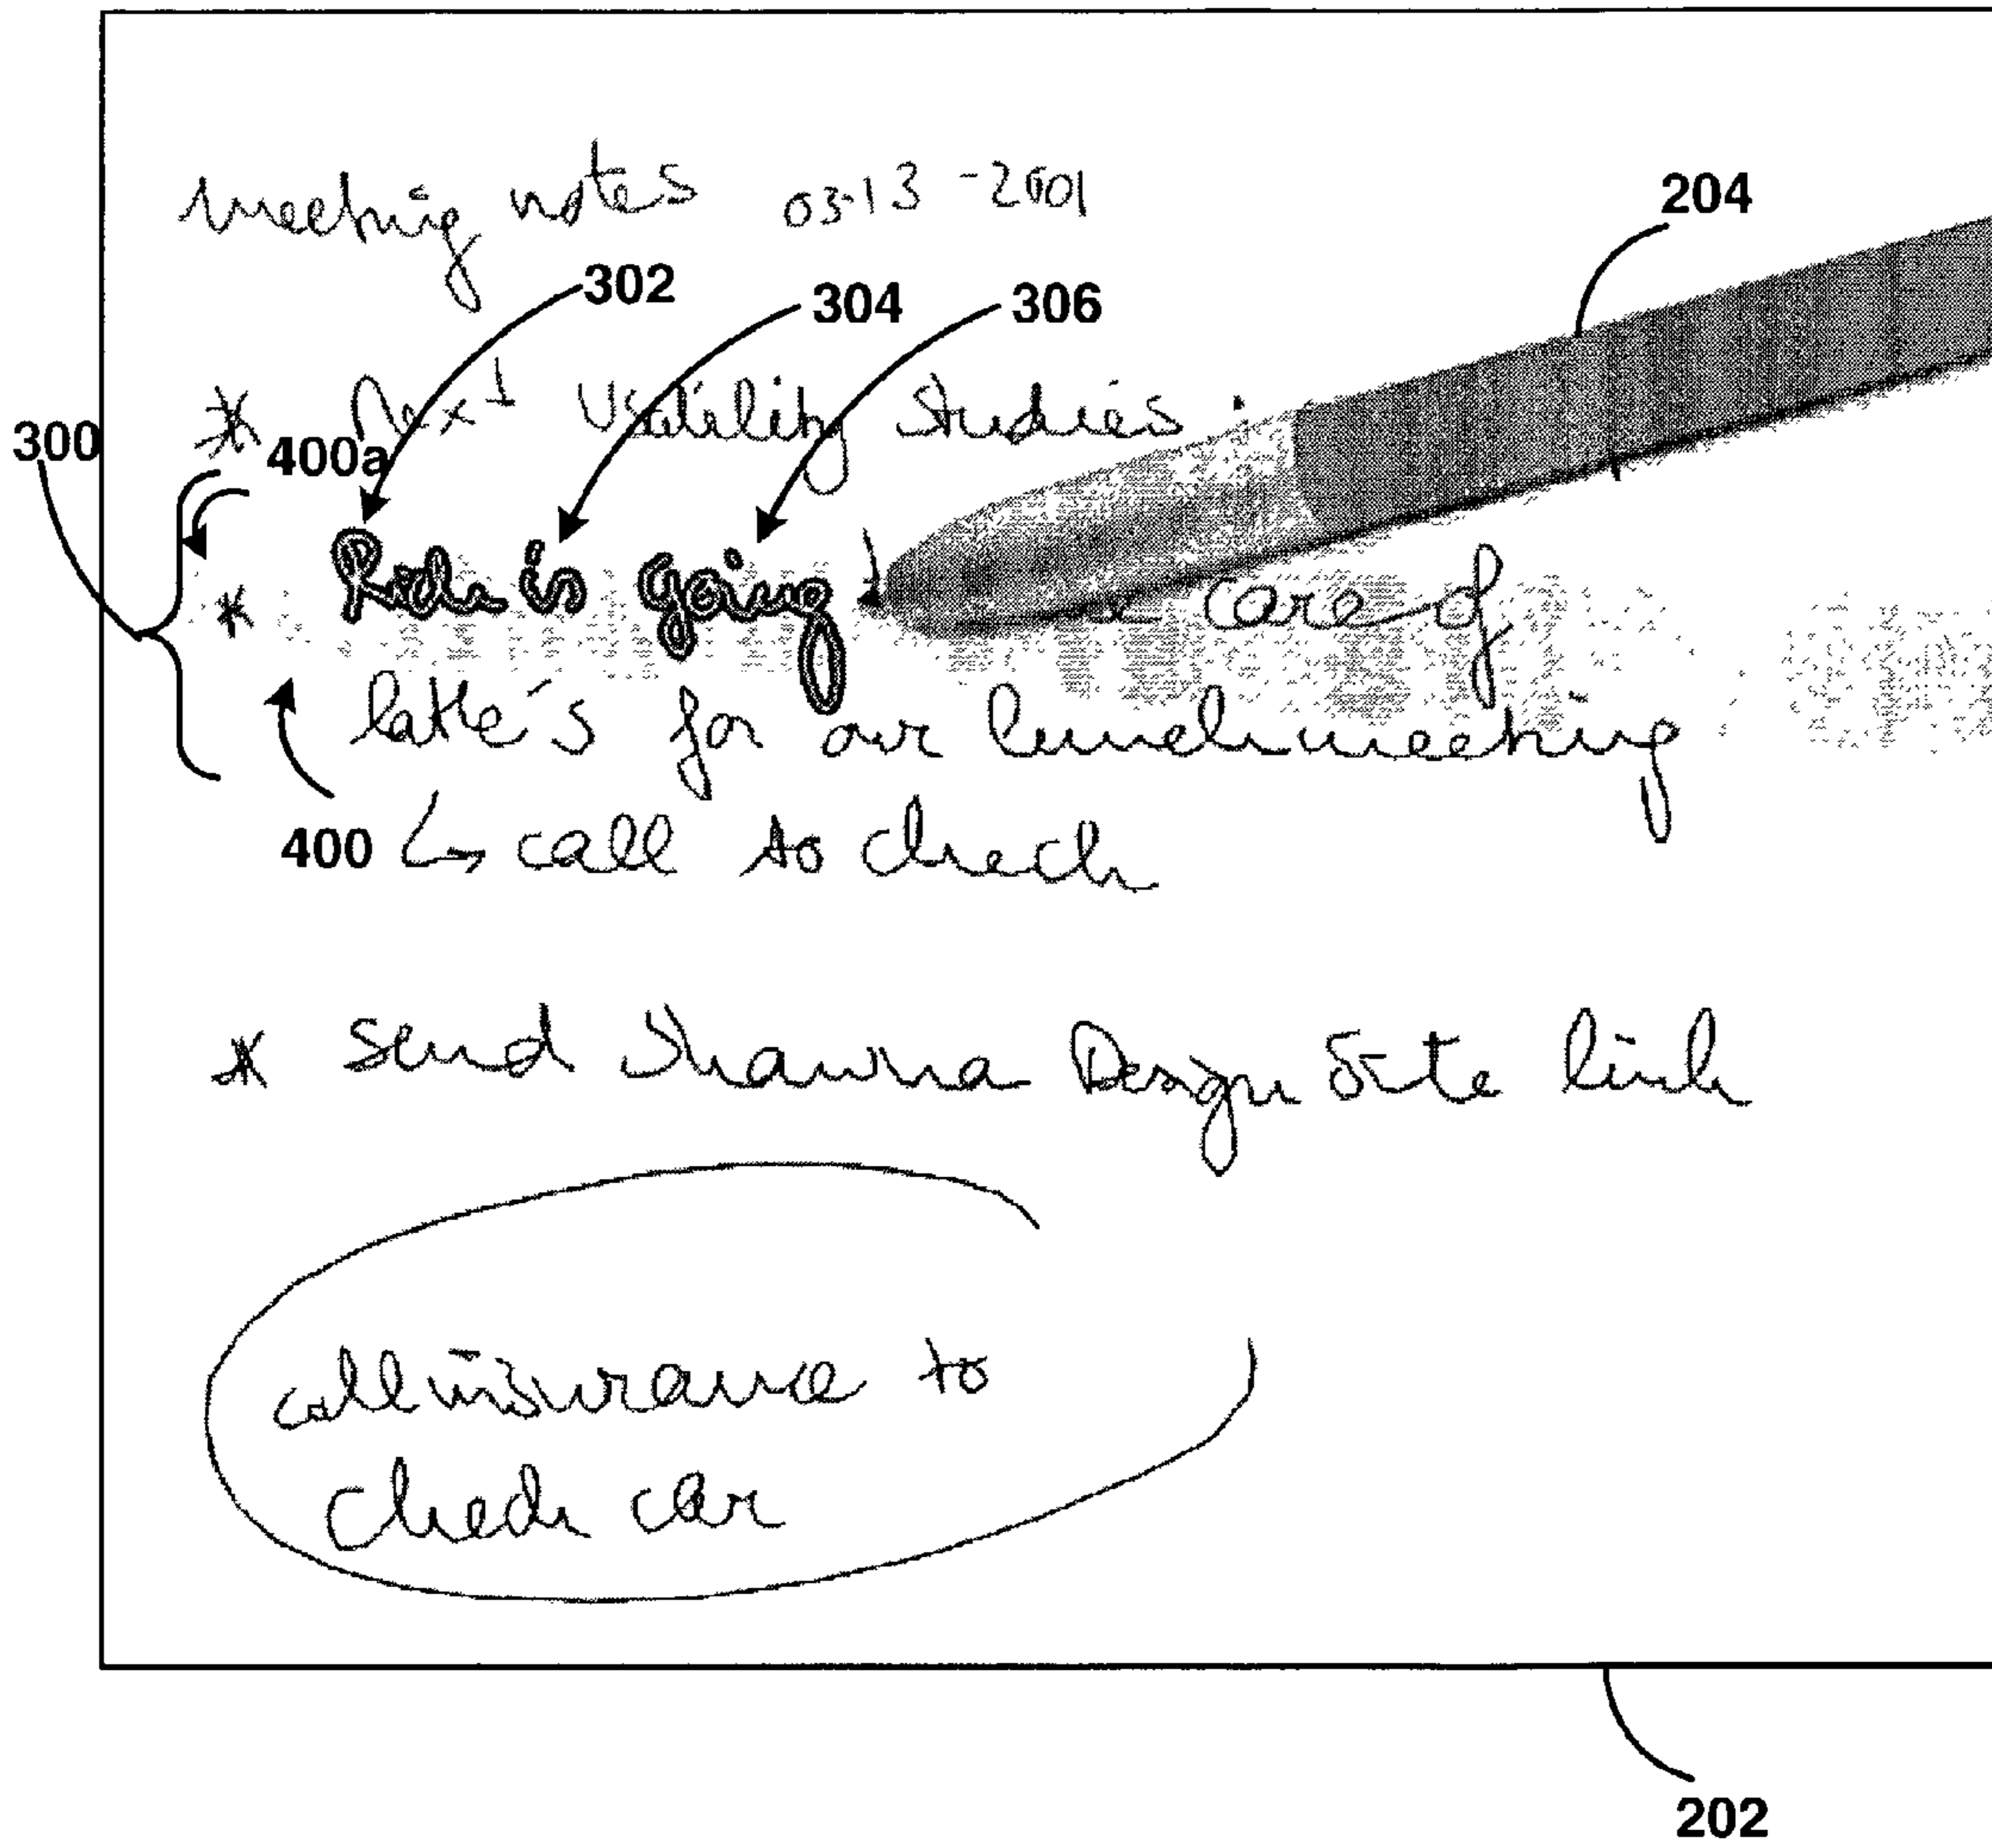 meeting notes 03-13-2001
204
302 304 306
* Next Usability Studies :
300 400a
* Rich is going care of
latte's for our lunch meeting
400 ↳ call to check
* Send Shawna Design Site link
call insurance to
check car
202